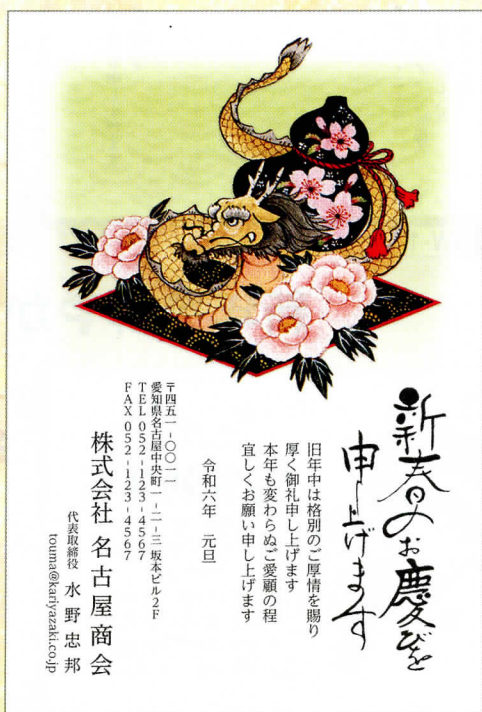 新春のお慶びを
申し上げます
旧年中は格別のご厚情を賜り
厚く御礼申し上げます
本年も変わらぬご愛顧の程
宜しくお願い申し上げます
令和六年 元旦
〒四五一-〇〇一一
愛知県名古屋中央町一-二-三 坂本ビル2F
TEL 052-123-4567
FAX 052-123-4567
株式会社 名古屋商会
代表取締役 水野忠邦
touma@kariyazaki.co.jp